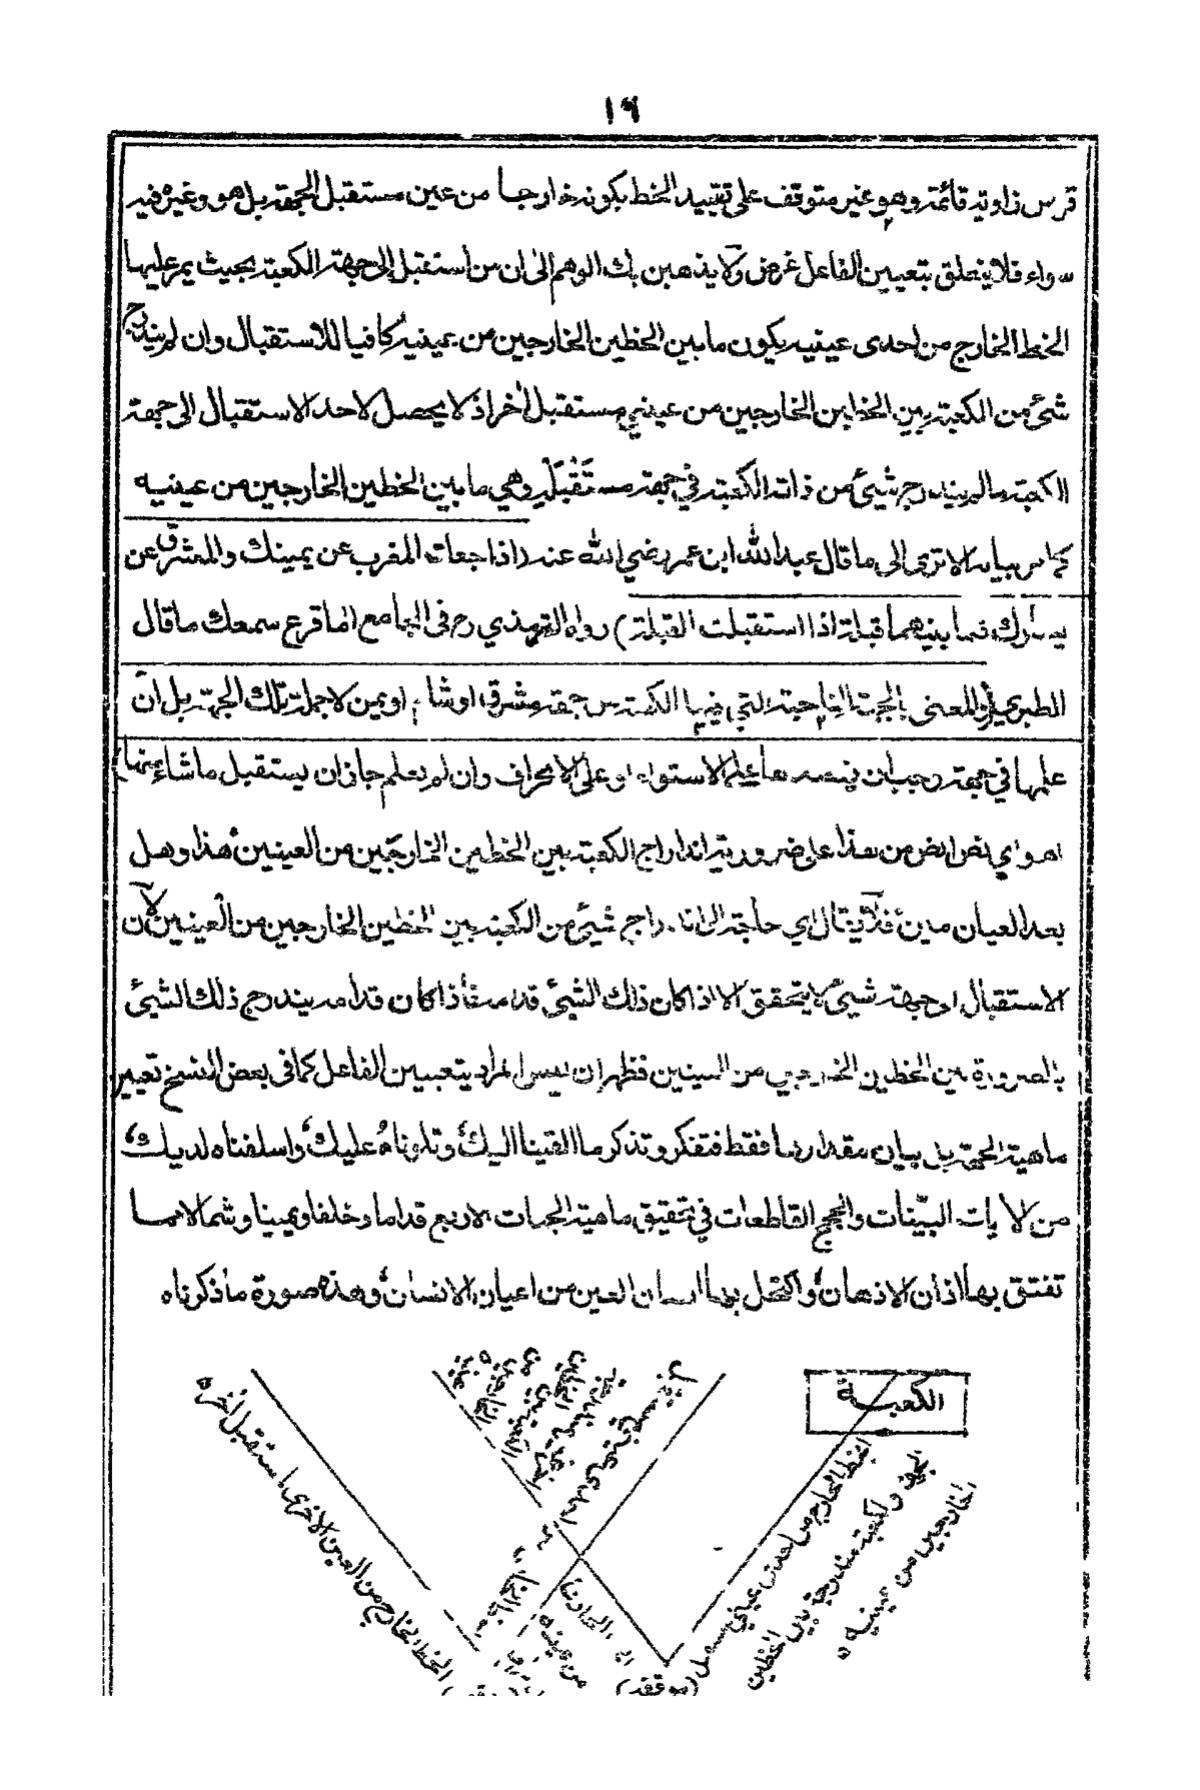 ١٦
قوس زاوية قائمة وهو غير متوقف على تقييد الخط بكونه خارجا من عين مستقبل الجهة بل هو وغيره فيه
سواء فلا يتعلق بتعيين الفاعل غرض ولا يذهبن بك الوهم الى ان من استقبل الى جهة الكعبة بحيث يمر عليها
الخط الخارج من احدى عينيه يكون ما بين الخطين الخارجين من عينيه كافيا للاستقبال وان لم يندرج
شئ من الكعبة بين الخطين الخارجين من عيني مستقبل اخر اذ لا يحصل لاحد الاستقبال الى جهة
الكعبة ما لم يندرج شئ من ذات الكعبة في جهة مستقبله وهي ما بين الخطين الخارجين من عينيه
كما مر بيانه الا ترى الى ما قال عبدالله ابن عمر رضي الله عنه (اذا جعلت المغرب عن يمينك والمشرق عن
يسارك فما بينهما قبلة اذا استقبلت القبلة) رواه الترمذي رح في الجامع اما قرع سمعك ما قال
الطبري والمعنى بالجهة الناحية التي فيها الكعبة من جهة مشرق او شام او يمن لا جملة تلك الجهة بل ان
علمها في جهة وجب ان يقصدها على الاستواء او على الانحراف وان لم يعلم جاز ان يستقبل ما شاء منها)
اهـ واي نص انص من هذا على ضرورية اندراج الكعبة بين الخطين الخارجين من العينين هذا وهل
بعد العيان مين فلا يقال اي حاجة الى اندراج شئ من الكعبة بين الخطين الخارجين من العينين لان
الاستقبال الى جهة شئ لا يتحقق الا اذا كان ذلك الشئ قدامه فاذا كان قدامه يندرج ذلك الشئ
بالضرورة بين الخطين الخارجين من العينين فظهر ان ليس المراد بتعيين الفاعل كما في بعض النسخ تعيين
ماهية الجهة بل بيان مقدارها فقط فتفكر وتذكر ما القينا اليك، وتلوناه عليك، واسلفناه لديك،
من الايات البينات والحجج القاطعات في تحقيق ماهية الجهات الاربع قداما وخلفا ويمينا وشمالا مما
تفتق بها اذان الاذهان، واكتحل بها انسان العين من اعيان الانسان، وهذه صورة ما ذكرناه
الكعبة
الخط الخارج من احدى عيني مستقبل (موقفه)
الجهة والكعبة مندرجة بين الخطين
الخارجين من عينيه
الخط الخارج من العين الاخرى لمستقبل اخر
من عينيه